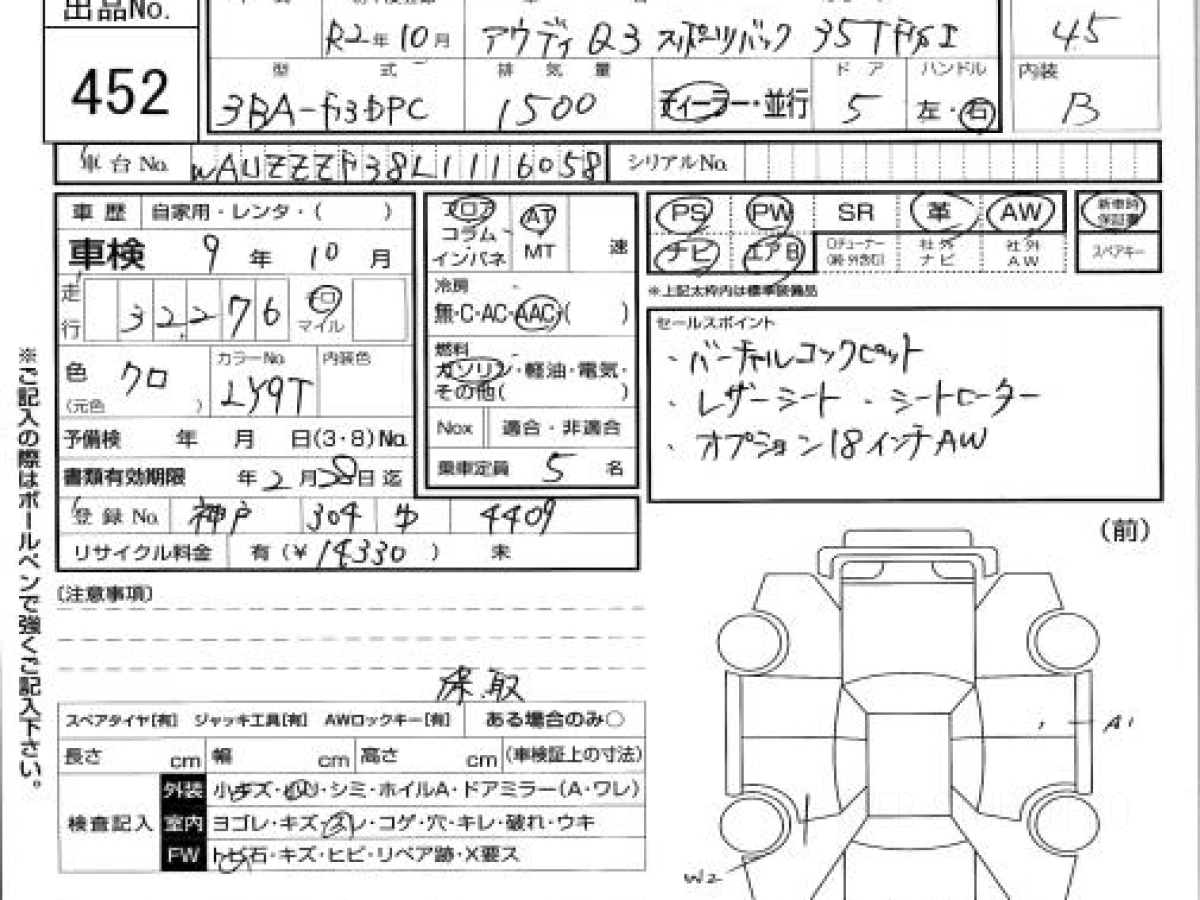 出品No.
452
R2年10月 アウディ Q3 スポーツバック 35TFSI
4.5
型式 排気量 ドア ハンドル 内装
3BA-F3DPC 1500 ディーラー・並行 5 左・右 B
車台No. WAUZZZF38L1116058 シリアルNo.
車歴 自家用・レンタ・( )
車検 9年10月
走行 32,276 キロ マイル
色 クロ カラーNo. LY9T 内装色
(元色 )
予備検 年 月 日(3・8)No.
書類有効期限 年2月28日迄
登録No. 神戸 304 4409
リサイクル料金 有(¥14330) 未
フロア コラム・インパネ AT MT 速
冷房
無・C・AC・AAC・( )
燃料
ガソリン・軽油・電気・
その他( )
Nox 適合・非適合
乗車定員 5 名
PS PW SR 革 AW 新車時保証書
ナビ エアB 社外ナビ 社外AW スペアキー
※上記太枠内は標準装備品
セールスポイント
・バーチャルコックピット
・レザーシート・シートヒーター
・オプション18インチAW
※ご記入の際はボールペンで強くご記入下さい。
(注意事項)
保、取
スペアタイヤ[有] ジャッキ工具[有] AWロックキー[有] ある場合のみ○
長さ cm 幅 cm 高さ cm (車検証上の寸法)
検査記入
外装 小キズ・シミ・ホイルA・ドアミラー(A・ワレ)
室内 ヨゴレ・キズ・スレ・コゲ・穴・キレ・破れ・ウキ
FW トビ石・キズ・ヒビ・リペア跡・X要ス
(前)
A1
W2